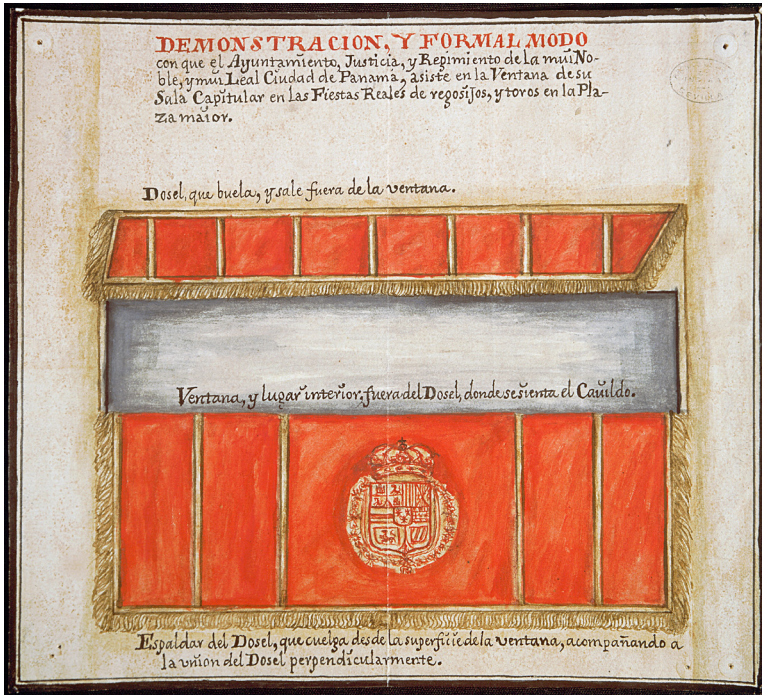 DEMONSTRACION, Y FORMAL MODO
con que el Ayuntamiento, Justicia, y Regimiento de la mui No-
ble, y mui Leal Ciudad de Panamá, asiste en la Ventana de su
Sala Capitular en las Fiestas Reales de regosijos, y toros en la Pla-
za maior.
Dosel, que buela, y sale fuera de la ventana.
Ventana, y lugar interior, fuera del Dosel, donde se sienta el Cavildo.
Espaldar del Dosel, que cuelga desde la superficie de la ventana, acompañando a
la union del Dosel perpendicularmente.